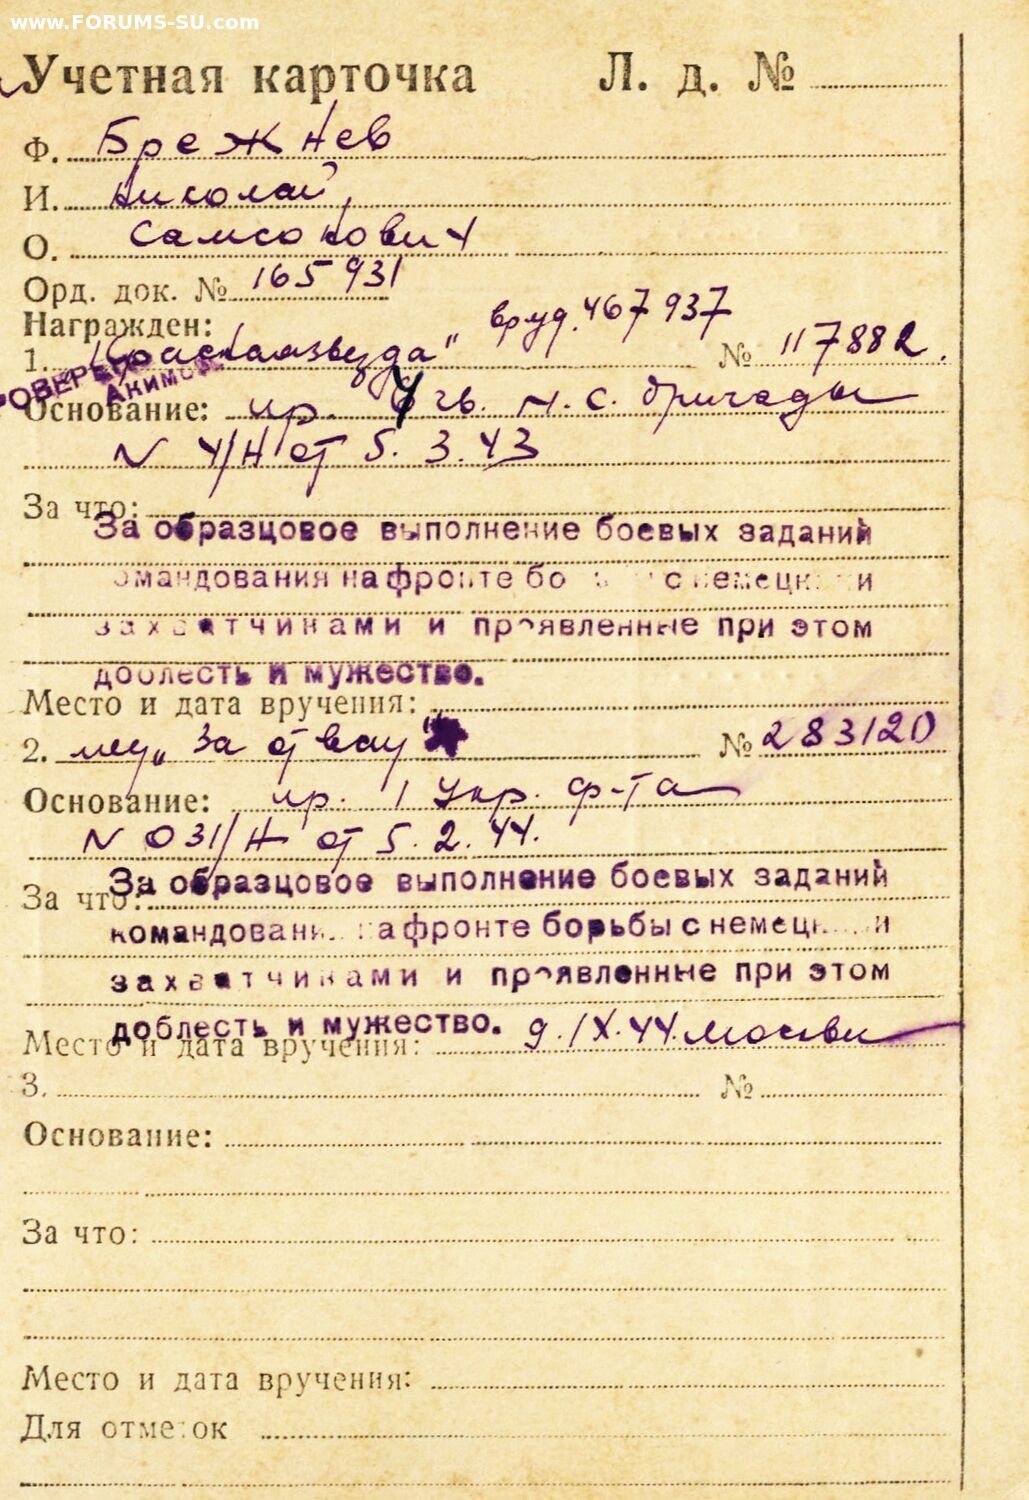 www.FORUMS-SU.com
Учетная карточка Л. д. №
Ф. Брежнев
И. Николай,
О. Самсонович
Орд. док. № 165 931
Награжден: вруч. 467 937
1. "Красная звезда" № 117882.
Акимов
Основание: пр. 4 гв. м. с. бригады
N 4/Н от 5. 3. 43
За что:
За образцовое выполнение боевых заданий
командования на фронте с немецкими
захватчиками и проявленные при этом
доблесть и мужество.
Место и дата вручения:
2. мед „За отвагу" № 283120
Основание: пр. 1 Укр. ф-та
N 031/Н от 5. 2. 44.
За что:
За образцовое выполнение боевых заданий
командования на фронте борьбы с немецкими
захватчиками и проявленные при этом
доблесть и мужество.
Место и дата вручения: 9. IX. 44. Москва
3. №
Основание:
За что:
Место и дата вручения:
Для отметок